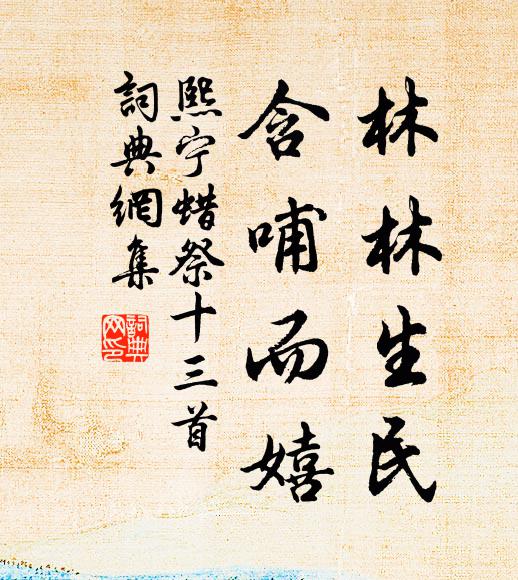 林林生民
含哺而嬉
熙宁蜡祭十三首
詞典網集
詞典
網印